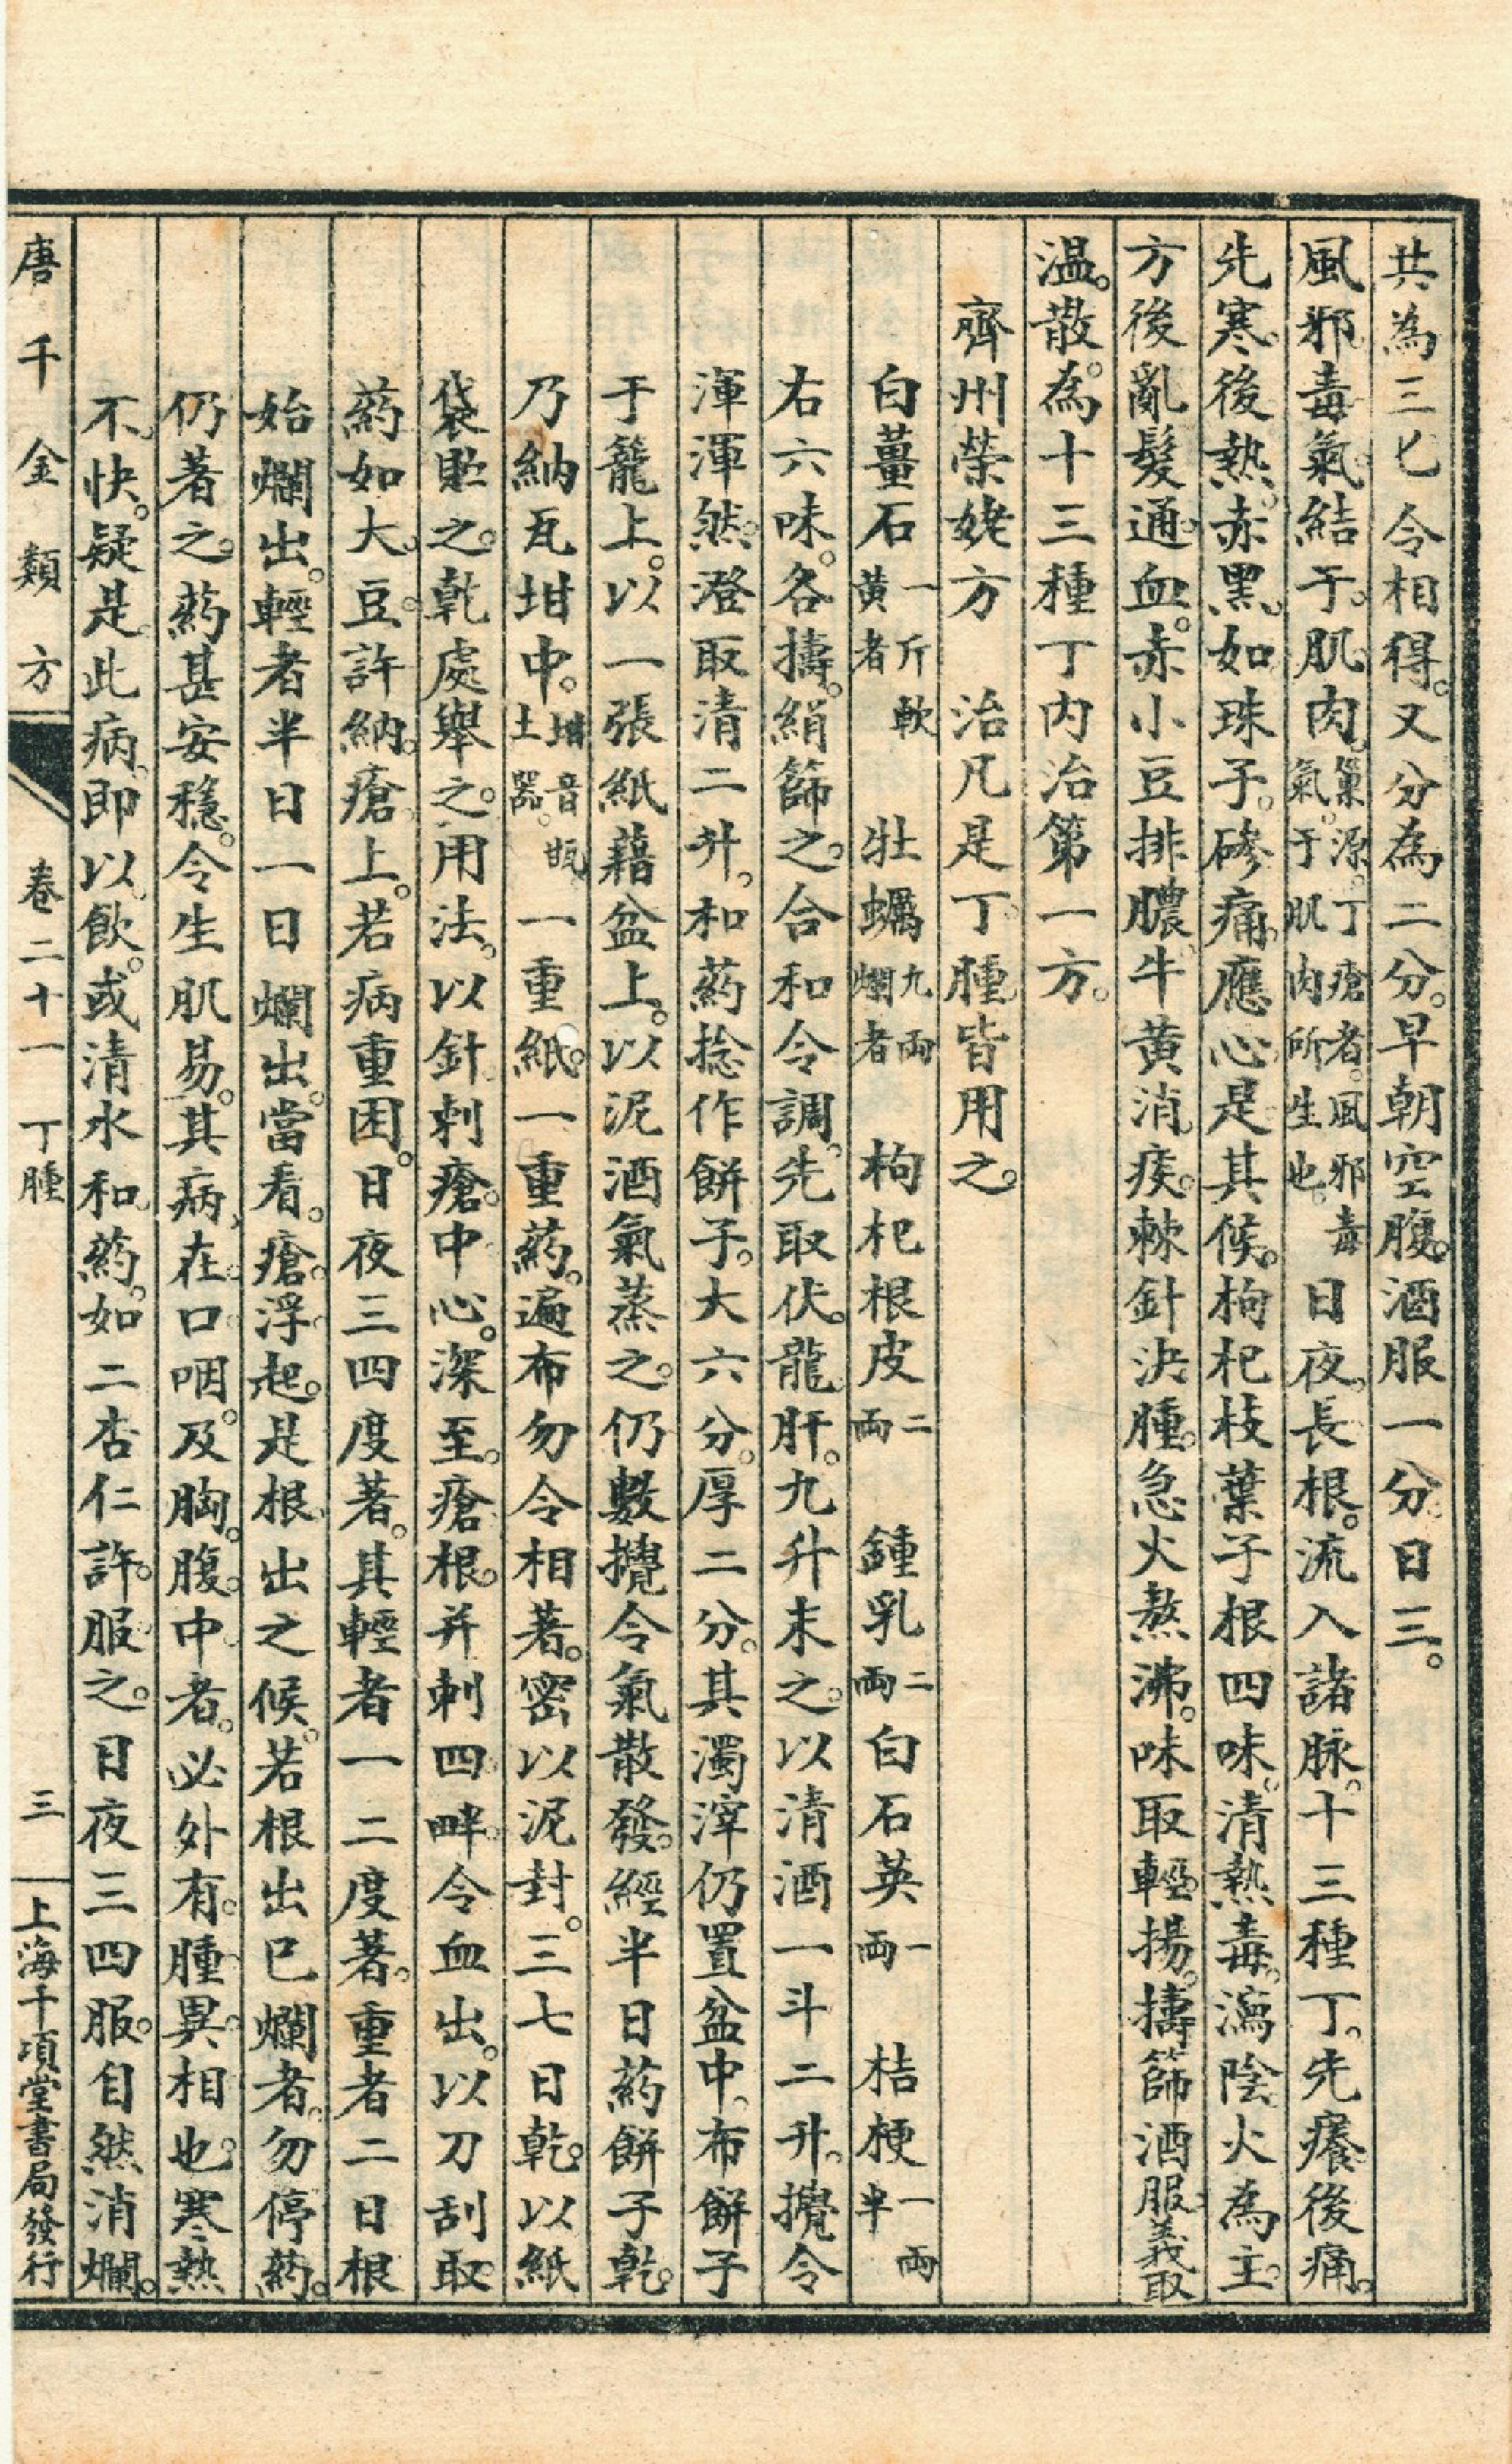 共為三匕令相得。又分為二分。早朝空腹。酒服一分。日三。
風邪。毒氣。結于。肌肉。巢源。丁瘡者。風邪毒氣。于肌肉所生也。日夜。長根。流入諸脉。十三種丁。先癢。後痛。
先寒。後熱。赤黑。如珠子。磣痛。應心。是其候。枸杞枝葉子根四味。清熱毒。瀉陰火為主。
方後亂髮通血。赤小豆排膿。牛黃消痰。棘針決腫。急火熬沸。味取輕揚。擣篩酒服義取
溫。散。為十三種丁内治第一方。
齊州榮姥方　治凡是丁腫皆用之。
白薑石一斤軟黄者　牡蠣九兩爛者　枸杞根皮二兩　鍾乳二兩　白石英一兩　桔梗一兩半
右六味。各擣。絹篩之。合和令調。先取伏龍肝。九升末之。以清酒一斗二升。攪令
渾渾然。澄取清二升。和葯捻作餅子。大六分。厚二分。其濁滓仍置盆中。布餅子
于籠上。以一張紙藉盆上。以泥酒氣蒸之。仍數攪令氣散發。經半日葯餅子乾。
乃納瓦坩中。坩音甁土器。一重紙。一重葯。遍布勿令相著。密以泥封。三七日乾。以紙
袋貯之。乾處舉之。用法。以針刺瘡。中心。深至。瘡根。并刺四畔。令血出。以刀刮取。
葯如大豆許納。瘡上。若病重困。日夜三四度著。其輕者一二度著。重者二日根
始爛出。輕者半日一日爛出。當看。瘡浮起。是根出之候。若根出已爛者。勿停葯。
仍著之。葯甚安穩。令生肌易。其病。在口咽。及胸。腹中者。必外有。腫異相也。寒熱
不快。疑是此病。即以飲。或清水和葯。如二杏仁許。服之。日夜三四服。自然消爛。
唐千金類方　卷二十一　丁腫　三　上海千頃堂書局發行